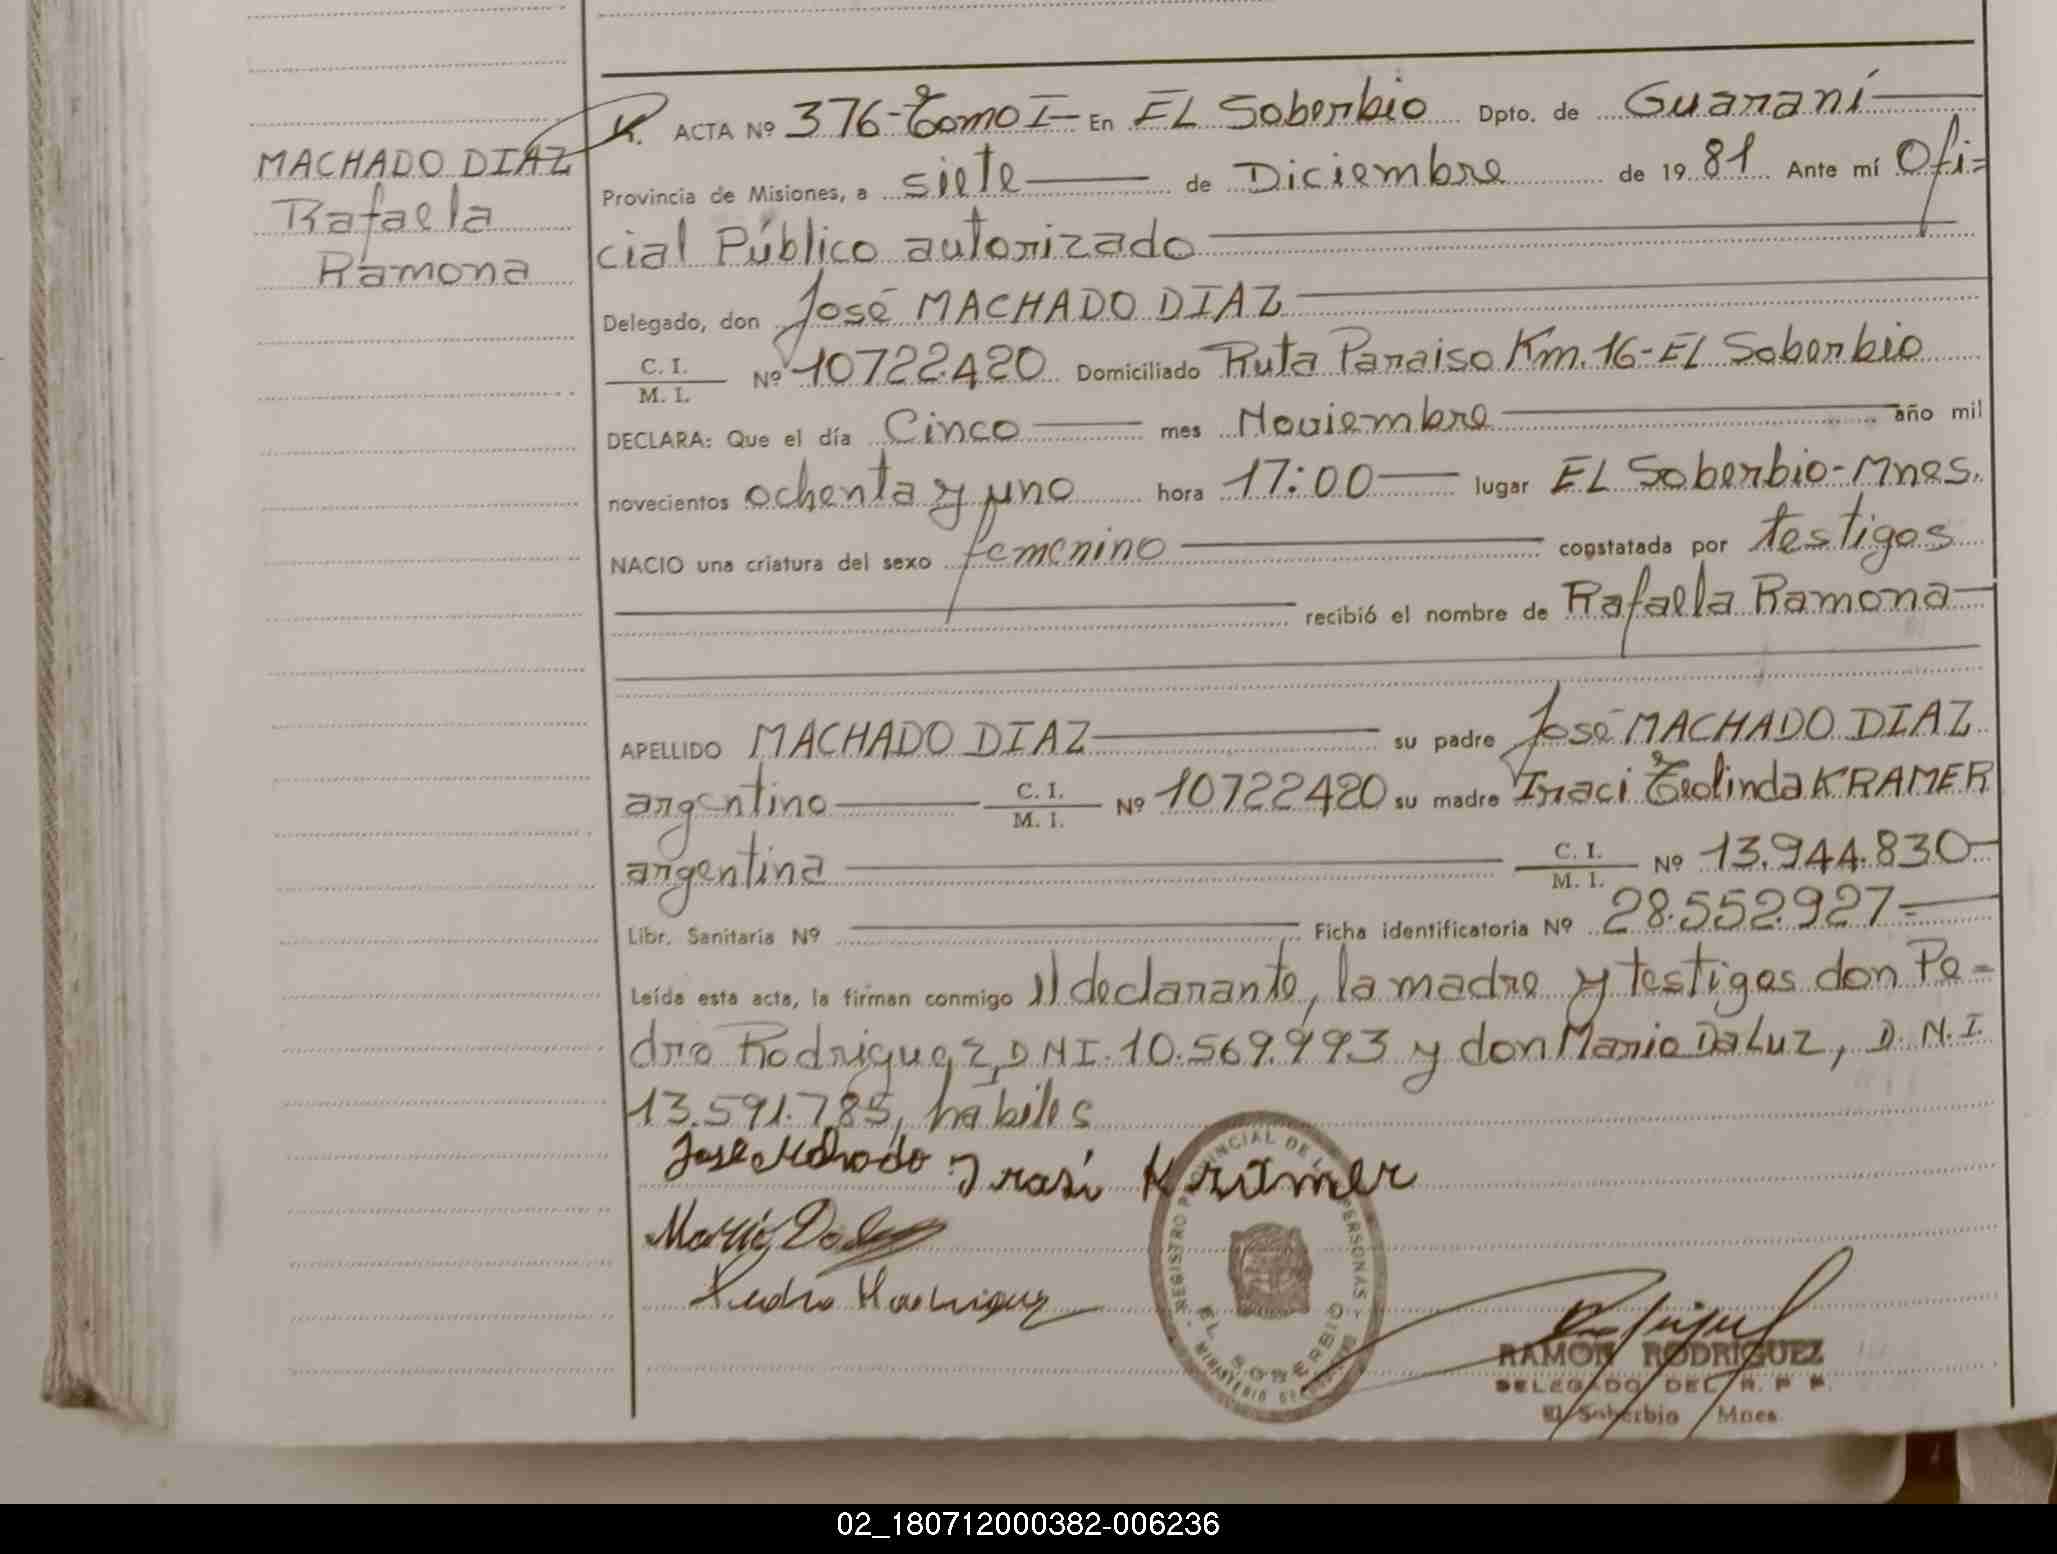 MACHADO DIAZ
Rafaela
Ramona
ACTA Nº 376-Tomo I- En EL Soberbio Dpto. de Guaraní
Provincia de Misiones, a siete de Diciembre de 19 81 Ante mí Ofi=
cial Público autorizado
Delegado, don José MACHADO DIAZ
C. I.
M. I. Nº 10722420 Domiciliado Ruta Paraiso Km. 16-EL Soberbio
DECLARA: Que el día Cinco mes Noviembre año mil
novecientos ochenta y uno hora 17:00 lugar EL Soberbio-Mnes.
NACIO una criatura del sexo femenino constatada por testigos
recibió el nombre de Rafaela Ramona
APELLIDO MACHADO DIAZ su padre José MACHADO DIAZ
argentino C. I. M. I. Nº 10722420 su madre Iraci Teolinda KRAMER
argentina C. I. M. I. Nº 13.944.830
Libr. Sanitaria Nº Ficha identificatoria Nº 28.552.927=
Leída esta acta, la firman conmigo el declarante, la madre y testigos don Pe=
dro Rodriguez, D N I. 10.569.993 y don Mario Da Luz, D. N. I.
13.591.785, habiles
Jose Machado Irasi Kramer
Mario Da Luz
Pedro Rodriguez
REGISTRO PROVINCIAL DE LAS PERSONAS
EL SOBERBIO
RAMON RODRIGUEZ
DELEGADO DEL R. P. P.
El Soberbio Mnes.
02_180712000382-006236